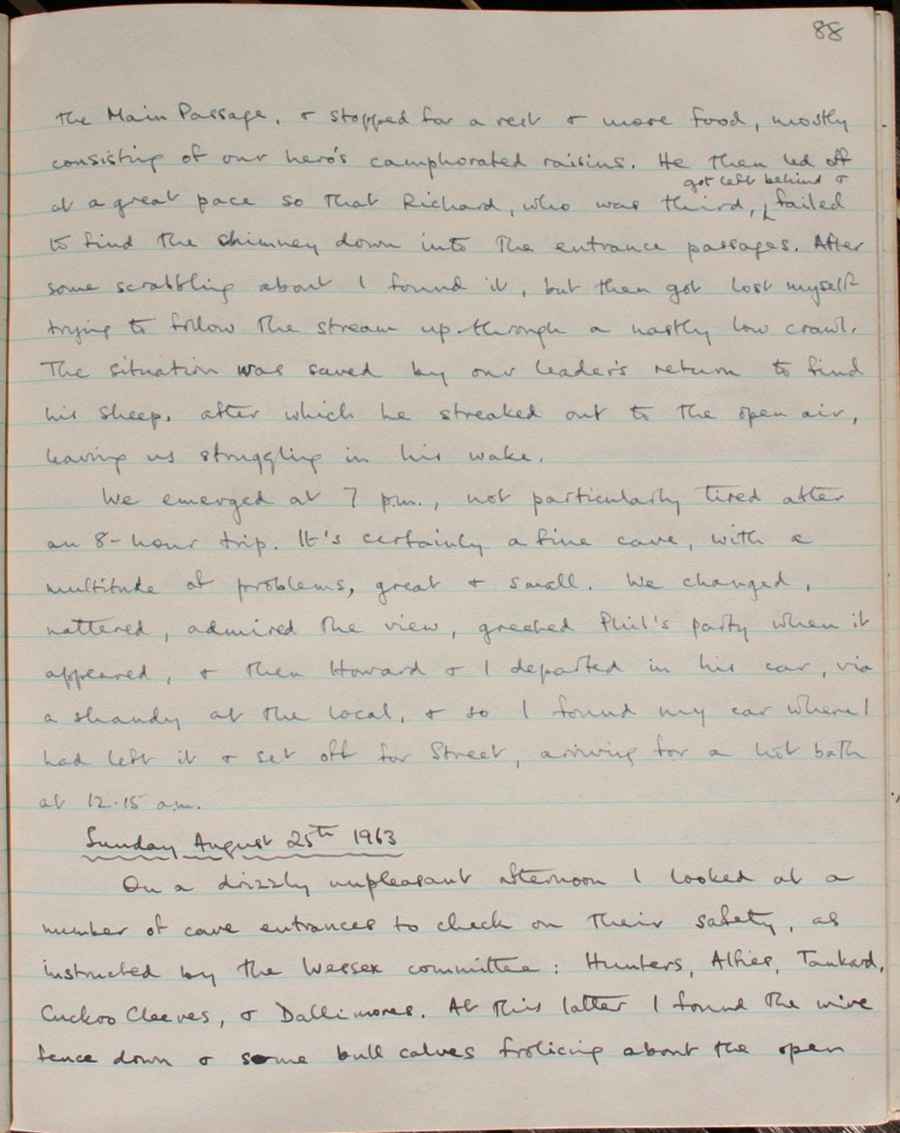 88
The Main Passage, & stopped for a rest & more food, mostly
consisting of our hero's camphorated raisins. He then led off
got left behind &
at a great pace so that Richard, who was third, failed
to find the chimney down into the entrance passages. After
some scrabbling about I found it, but then got lost myself
trying to follow the stream up through a nastly low crawl.
The situation was saved by our leader's return to find
his sheep, after which he streaked out to the open air,
leaving us struggling in his wake.
We emerged at 7 p.m., not particularly tired after
an 8-hour trip. It's certainly a fine cave, with a
multitude of problems, great & small. We changed,
nattered, admired the view, greeted Phil's party when it
appeared, & then Howard & I departed in his car, via
a shandy at the local, & so I found my car where I
had left it & set off for Street, arriving for a hot bath
at 12.15 a.m.
Sunday August 25th 1963
On a drizzly unpleasant afternoon I looked at a
number of cave entrances to check on their safety, as
instructed by the Wessex committee: Hunters, Alfies, Tankard,
Cuckoo Cleeves, & Dallimores. At this latter I found the wire
fence down & some bull calves frolicing about the open